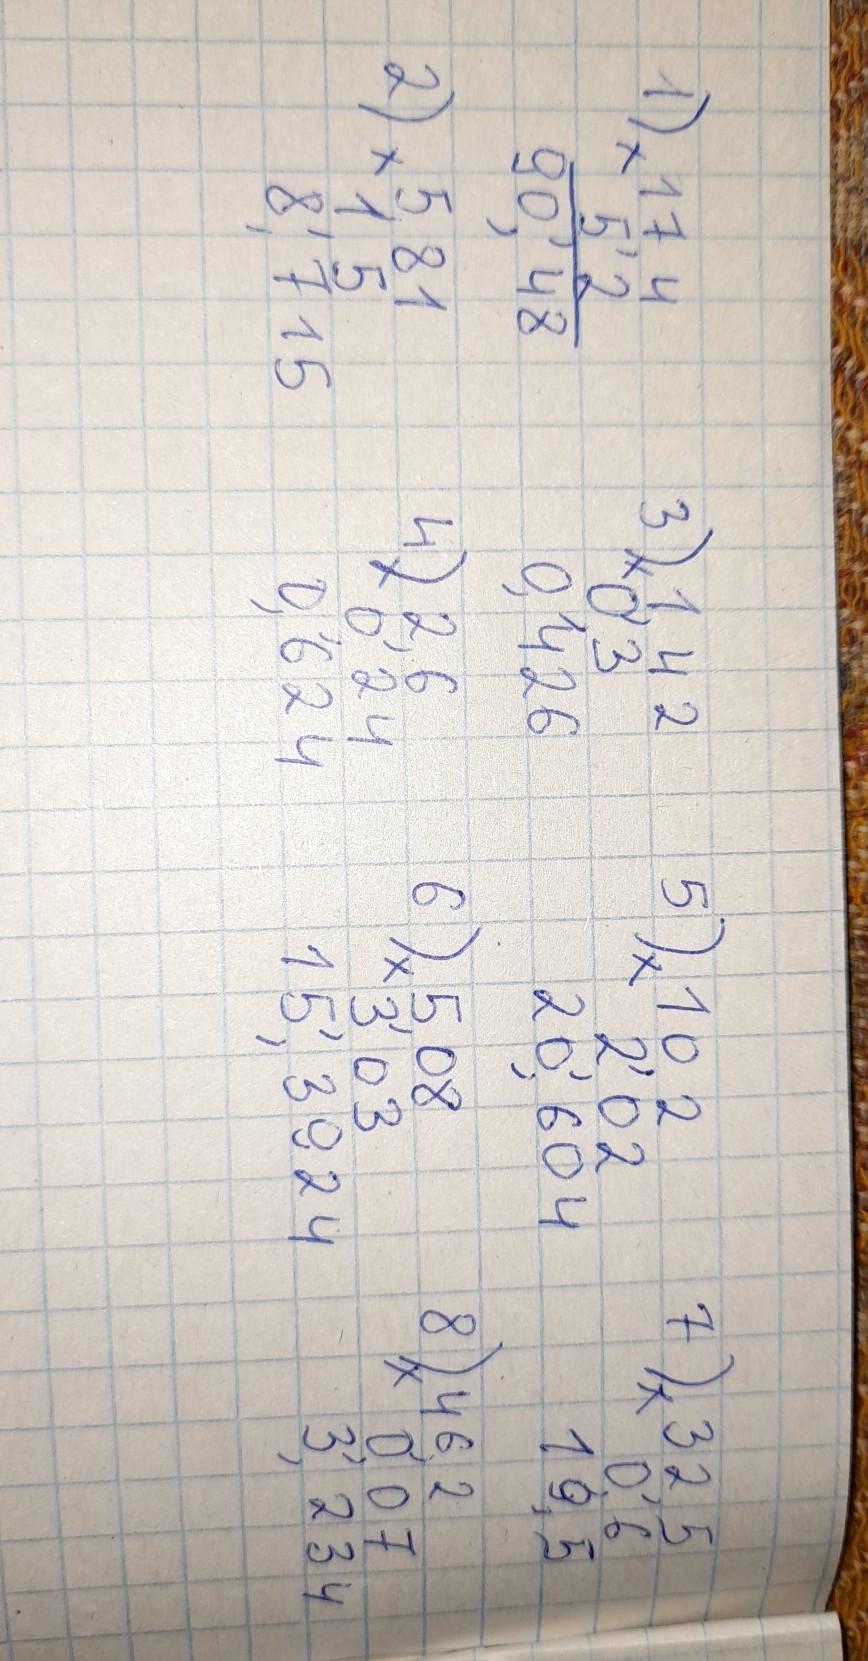 1) × 17,4
5,2
90,48
2) × 5,81
1,5
8,715
3) × 1,42
0,3
0,426
4) × 2,6
0,24
0,624
5) × 10,2
2,02
20,604
6) × 5,08
3,03
15,3924
7) × 32,5
0,6
19,5
8) × 46,2
0,07
3,234